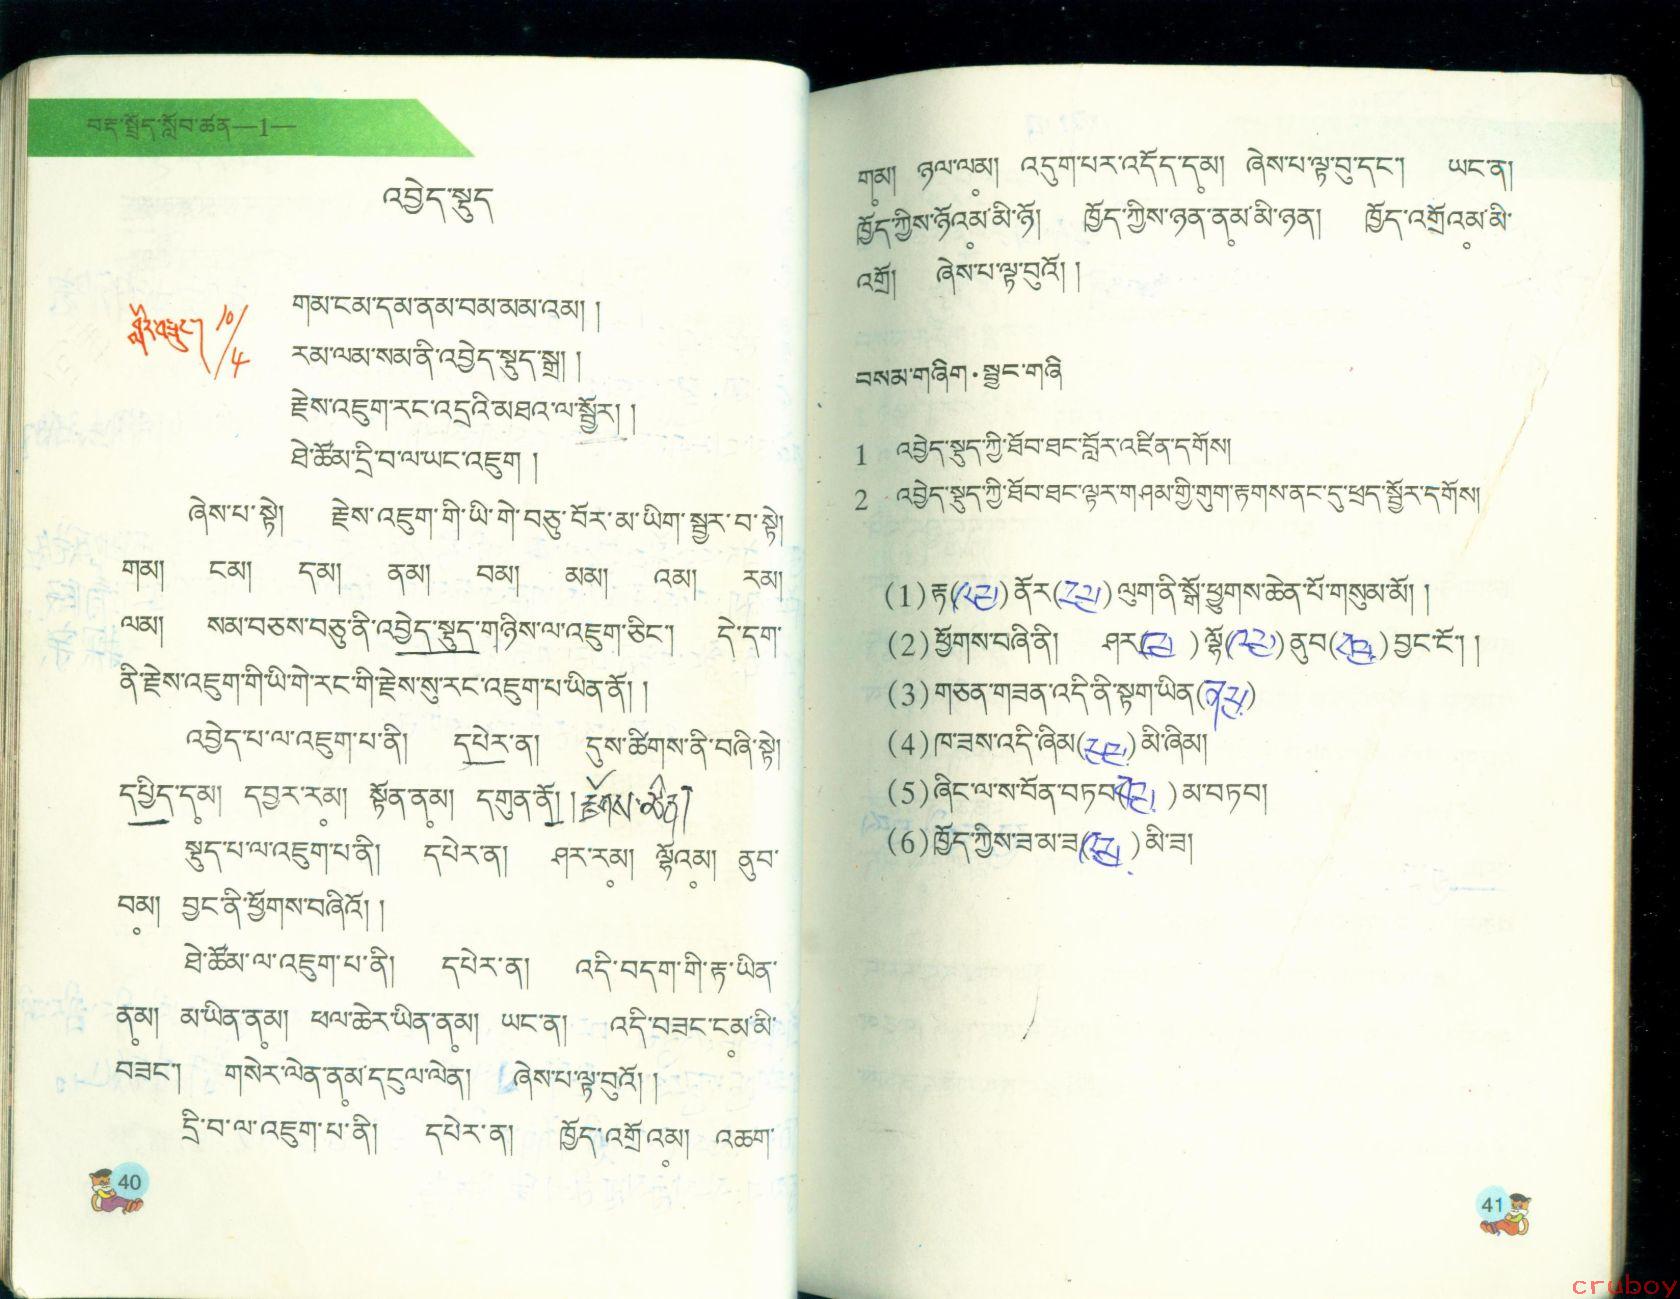 བརྡ་སྤྲོད་སློབ་ཚན—1—
འབྱེད་སྡུད
གམ་ངམ་དམ་ནམ་བམ་མམ་འམ། །
10/4
རམ་ལམ་སམ་ནི་འབྱེད་སྡུད་སྒྲ། །
རྗེས་འཇུག་རང་འདྲའི་མཐའ་ལ་སྦྱོར། །
ཐེ་ཚོམ་དྲི་བ་ལ་ཡང་འཇུག །
ཞེས་པ་སྟེ། རྗེས་འཇུག་གི་ཡི་གེ་བཅུ་བོར་མ་ཡིག་སྦྱར་བ་སྟེ།
གམ། ངམ། དམ། ནམ། བམ། མམ། འམ། རམ།
ལམ། སམ་བཅས་བཅུ་ནི་འབྱེད་སྡུད་གཉིས་ལ་འཇུག་ཅིང་། དེ་དག་
ནི་རྗེས་འཇུག་གི་ཡི་གེ་རང་གི་རྗེས་སུ་རང་འཇུག་པ་ཡིན་ནོ། །
འབྱེད་པ་ལ་འཇུག་པ་ནི། དཔེར་ན། དུས་ཚིགས་ནི་བཞི་སྟེ།
དཔྱིད་དམ། དབྱར་རམ། སྟོན་ནམ། དགུན་ནོ། ། རྫོགས་ཚིག
སྡུད་པ་ལ་འཇུག་པ་ནི། དཔེར་ན། ཤར་རམ། ལྷོའམ། ནུབ་
བམ། བྱང་ནི་ཕྱོགས་བཞིའོ། །
ཐེ་ཚོམ་ལ་འཇུག་པ་ནི། དཔེར་ན། འདི་བདག་གི་རྟ་ཡིན་
ནམ། མ་ཡིན་ནམ། ཕལ་ཆེར་ཡིན་ནམ། ཡང་ན། འདི་བཟང་ངམ་མི་
བཟང་། གསེར་ལེན་ནམ་དངུལ་ལེན། ཞེས་པ་ལྟ་བུའོ། །
དྲི་བ་ལ་འཇུག་པ་ནི། དཔེར་ན། ཁྱོད་འགྲོ་འམ། འཆག་
40
གམ། ཉལ་ལམ། འདུག་པར་འདོད་དམ། ཞེས་པ་ལྟ་བུ་དང་། ཡང་ན།
ཁྱོད་ཀྱིས་ཉོའམ་མི་ཉོ། ཁྱོད་ཀྱིས་ཉན་ནམ་མི་ཉན། ཁྱོད་འགྲོའམ་མི་
འགྲོ། ཞེས་པ་ལྟ་བུའོ། །
བསམ་གཞིག·སྦྱང་གཞི
1 འབྱེད་སྡུད་ཀྱི་ཐོབ་ཐང་བློར་འཛིན་དགོས།
2 འབྱེད་སྡུད་ཀྱི་ཐོབ་ཐང་ལྟར་གཤམ་གྱི་གུག་རྟགས་ནང་དུ་ཕྲད་སྦྱོར་དགོས།
(1) རྟ(འམ།) ནོར(རམ།) ལུག་ནི་སྒོ་ཕྱུགས་ཆེན་པོ་གསུམ་མོ། །
(2) ཕྱོགས་བཞི་ནི། ཤར(རམ ) ལྷོ(འམ) ནུབ(བམ) བྱང་ངོ་། །
(3) གཅན་གཟན་འདི་ནི་སྟག་ཡིན(ནམ།)
(4) ཁ་ཟས་འདི་ཞིམ(མམ) མི་ཞིམ།
(5) ཞིང་ལ་ས་བོན་བཏབ(བམ ) མ་བཏབ།
(6) ཁྱོད་ཀྱིས་ཟ་མ་ཟ(འམ ) མི་ཟ།
41
cruboy